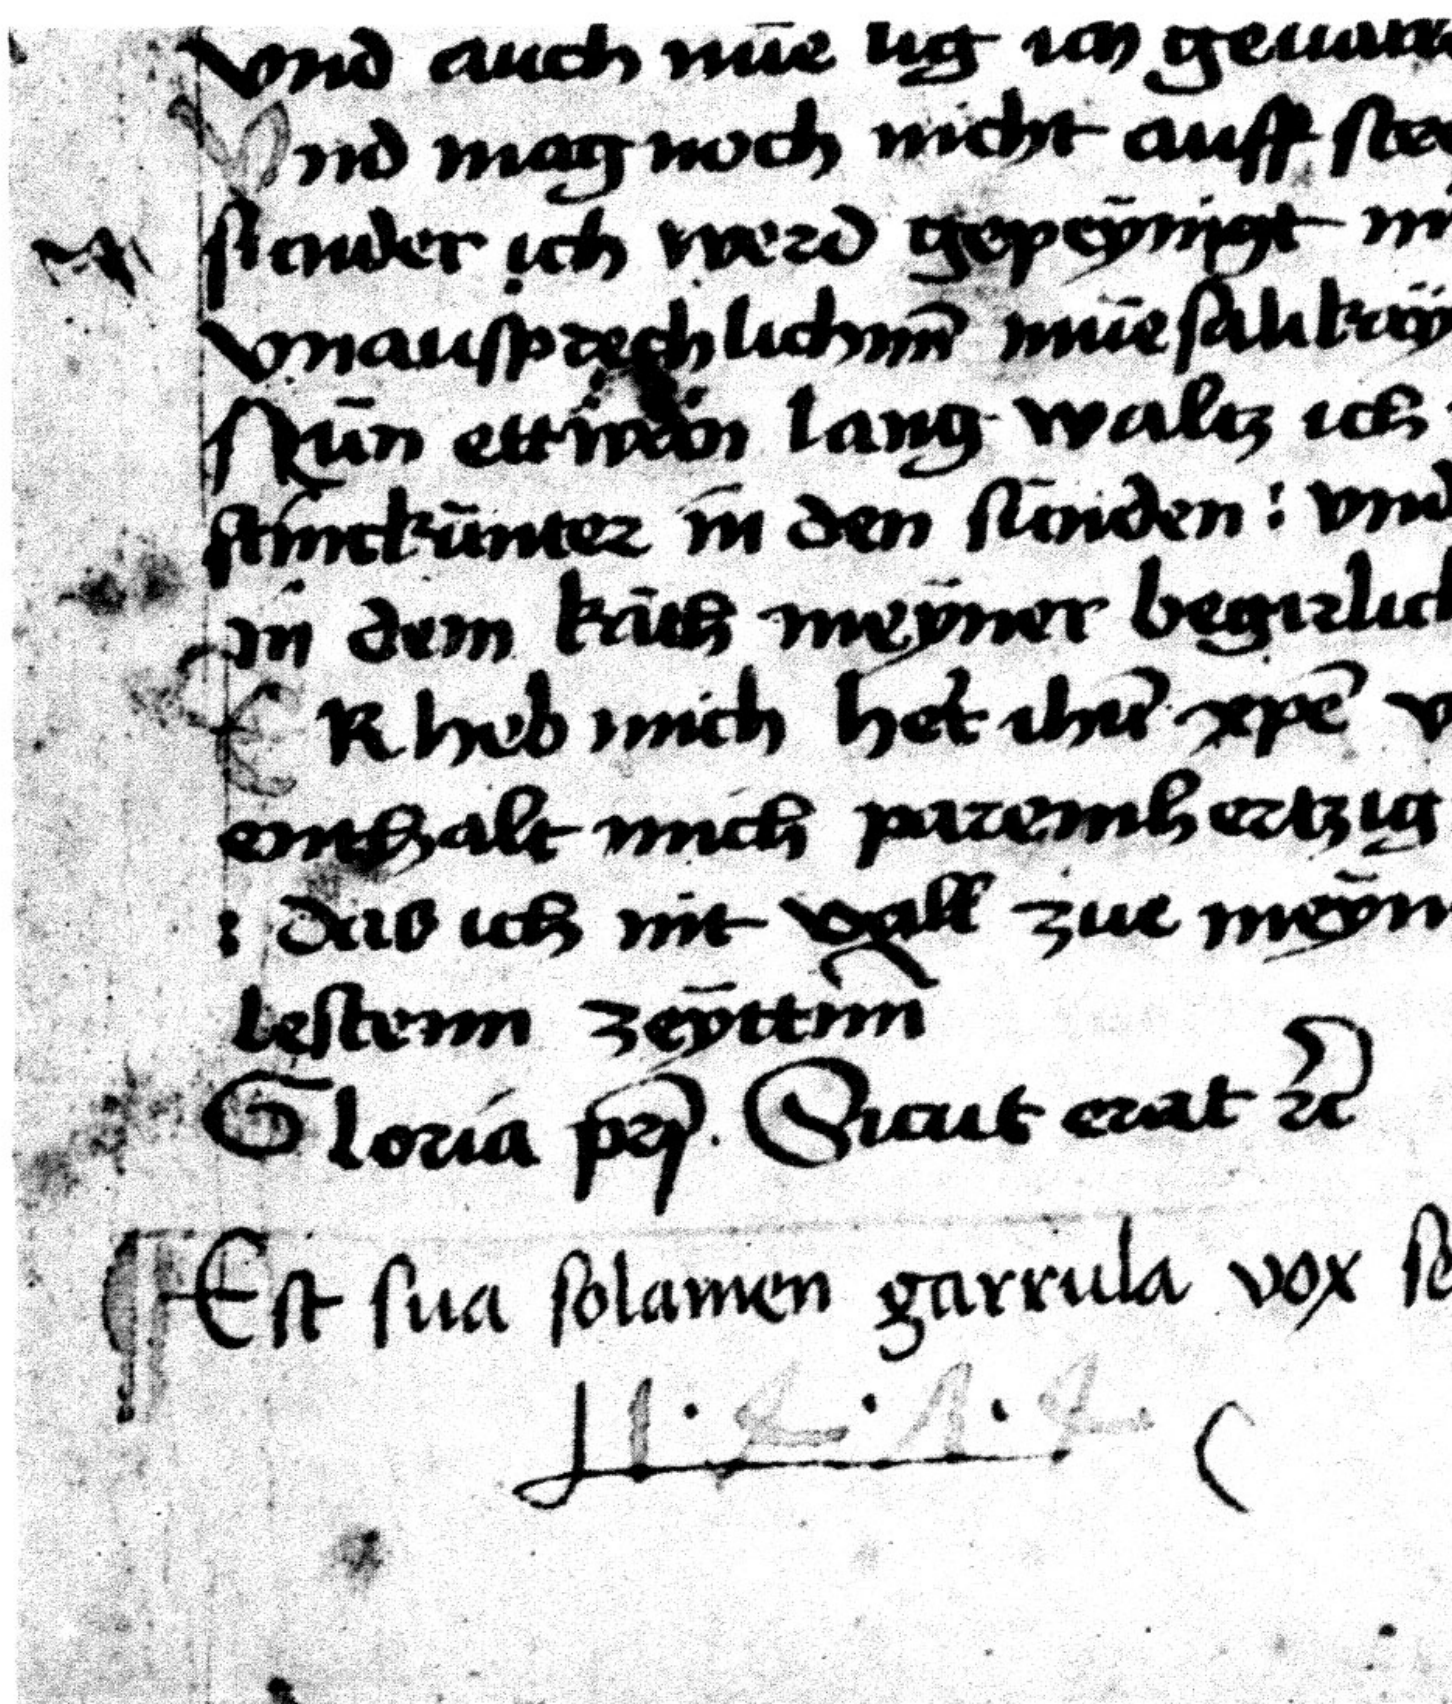 vnd auch nūe lig ich
Vnd mag noch nicht auff
sunder ich werd gepeÿnigt
vnausprechlichnn̄ mūesalikaÿ
Nūn ettwan lang waltz ich
stinckūnter in den sūnden : vnd
in dem kath meÿner
ERheb mich her̄ ihū xpē
enthalt mich paremhertzig
: das ich nit vall zue meÿn
lestenn zeÿttnn̄
Gloria pr̄j. Sicut erat ꝛc̄
¶ Est sua solamen garrula vox